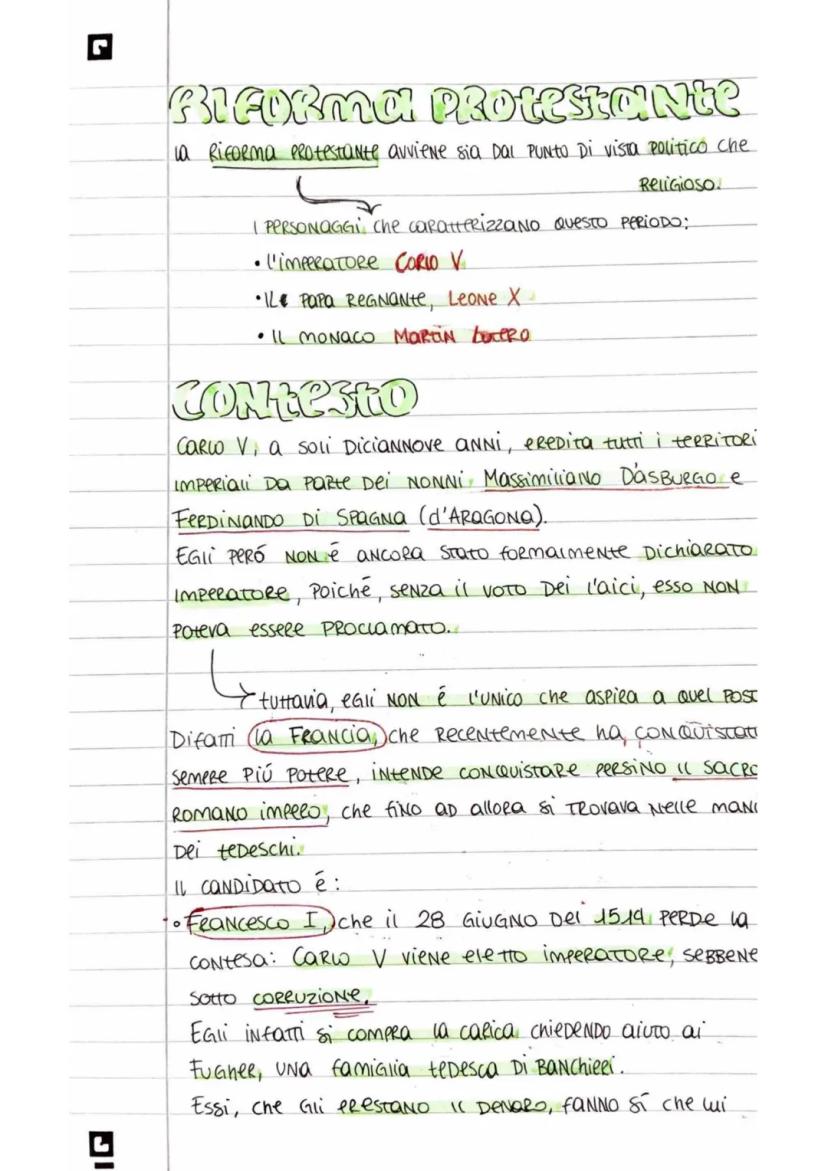 RIFORMA PROTESTANTE
la RIFORMA PROTESTANTE avviene sia dal punto di vista politico che
religioso.
I personaggi che caratterizzano questo periodo:
• l'imperatore Carlo V
• Il papa regnante, Leone X
• Il monaco Martin Lutero
CONTESTO
Carlo V, a soli diciannove anni, eredita tutti i territori
imperiali da parte dei nonni, Massimiliano D'asburgo e
Ferdinando di Spagna (d'Aragona).
Egli peró non é ancora stato formalmente dichiarato
imperatore, poiché, senza il voto dei l'aici, esso non
poteva essere proclamato.
tuttavia, egli non é l'unico che aspira a quel post
Difatti la Francia, che recentemente ha conquistat
sempre piú potere, intende conquistare persino il Sacro
Romano impero, che fino ad allora si trovava nelle mani
dei tedeschi.
Il candidato é:
• Francesco I, che il 28 giugno del 1519 perde la
contesa: Carlo V viene eletto imperatore, sebbene
sotto corruzione.
Egli infatti si compra la carica chiedendo aiuto ai
Fugher, una famiglia tedesca di banchieri.
Essi, che gli prestano il denaro, fanno sí che lui